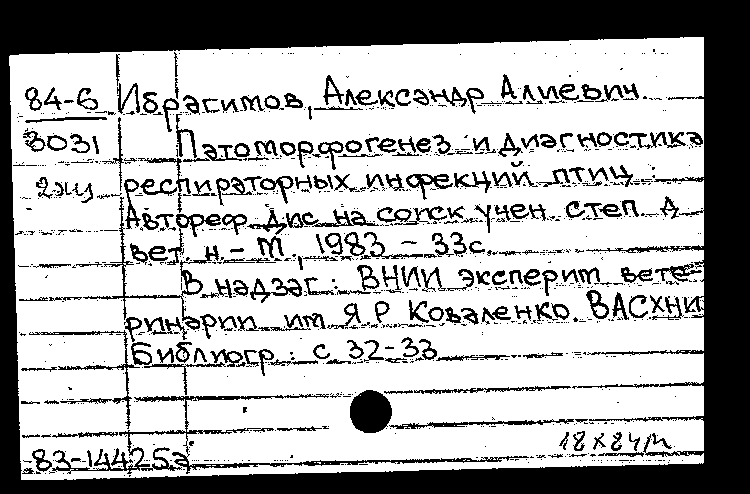 84-6 Ибрагимов, Александр Алиевич.
3031 Патоморфогенез и диагностика
2 экз респираторных инфекций птиц :
Автореф дис на соиск учен степ д
вет. н - М, 1983 - 33с.
В надзаг: ВНИИ эксперим вете-
ринарии им Я Р Коваленко. ВАСХНИ
Библиогр: с 32-33
18 х 84 м
83-14425а